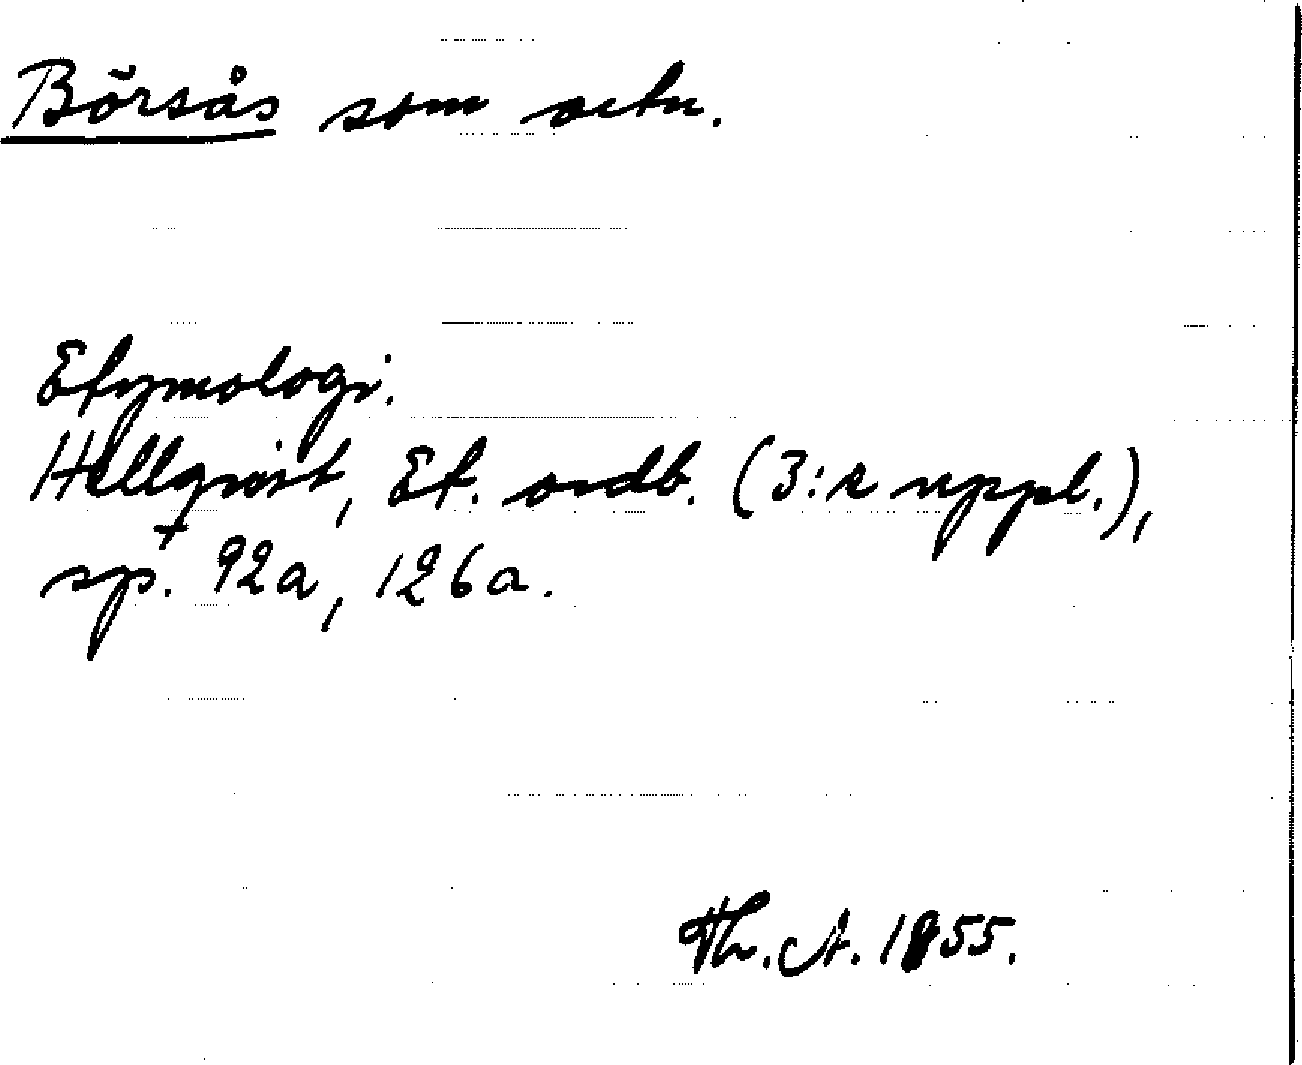 Börsås som ortn.
Etymologi.
Hellqvist, Et. ordb. (3:e uppl.),
sp. 92a, 126a.
Th. A. 1955.